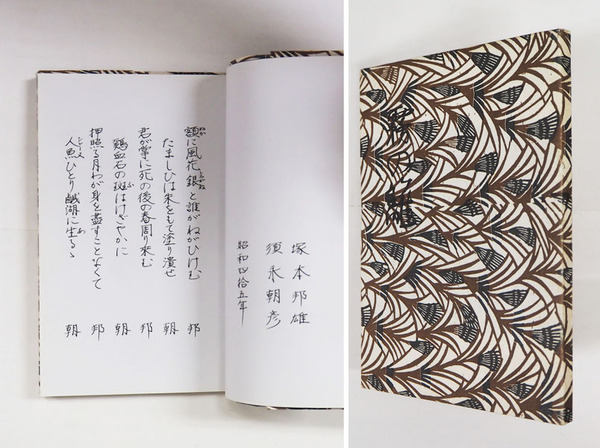 塚本邦雄
須永朝彦
昭和四拾五年
額に風花銀と誰がねがひけむ 邦
たましひは朱をもて塗り潰せ 朝
君が掌に死の後の春周り來む 邦
鷄血石の斑はけざやかに 朝
押照る月わが身を盡すことなくて 邦
人魚ひとり鹹湖に生るゝ 朝